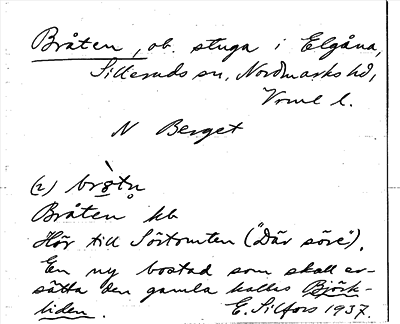 Bråten, ob. stuga i Elgåna,
Silleruds sn, Nordmarks hd,
Vrml l.
N Berget
(2) bròtn̥
Bråten hb
Hör till Sörtomten ("Där söre").
En ny bostad som skall er-
sätta den gamla kallas Björk-
liden. E. Silfors 1937.